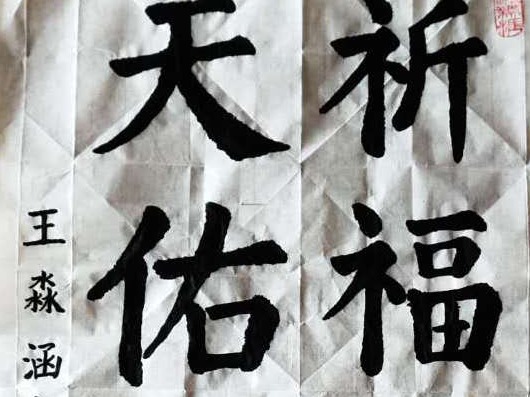 祈福
天佑
王淼涵